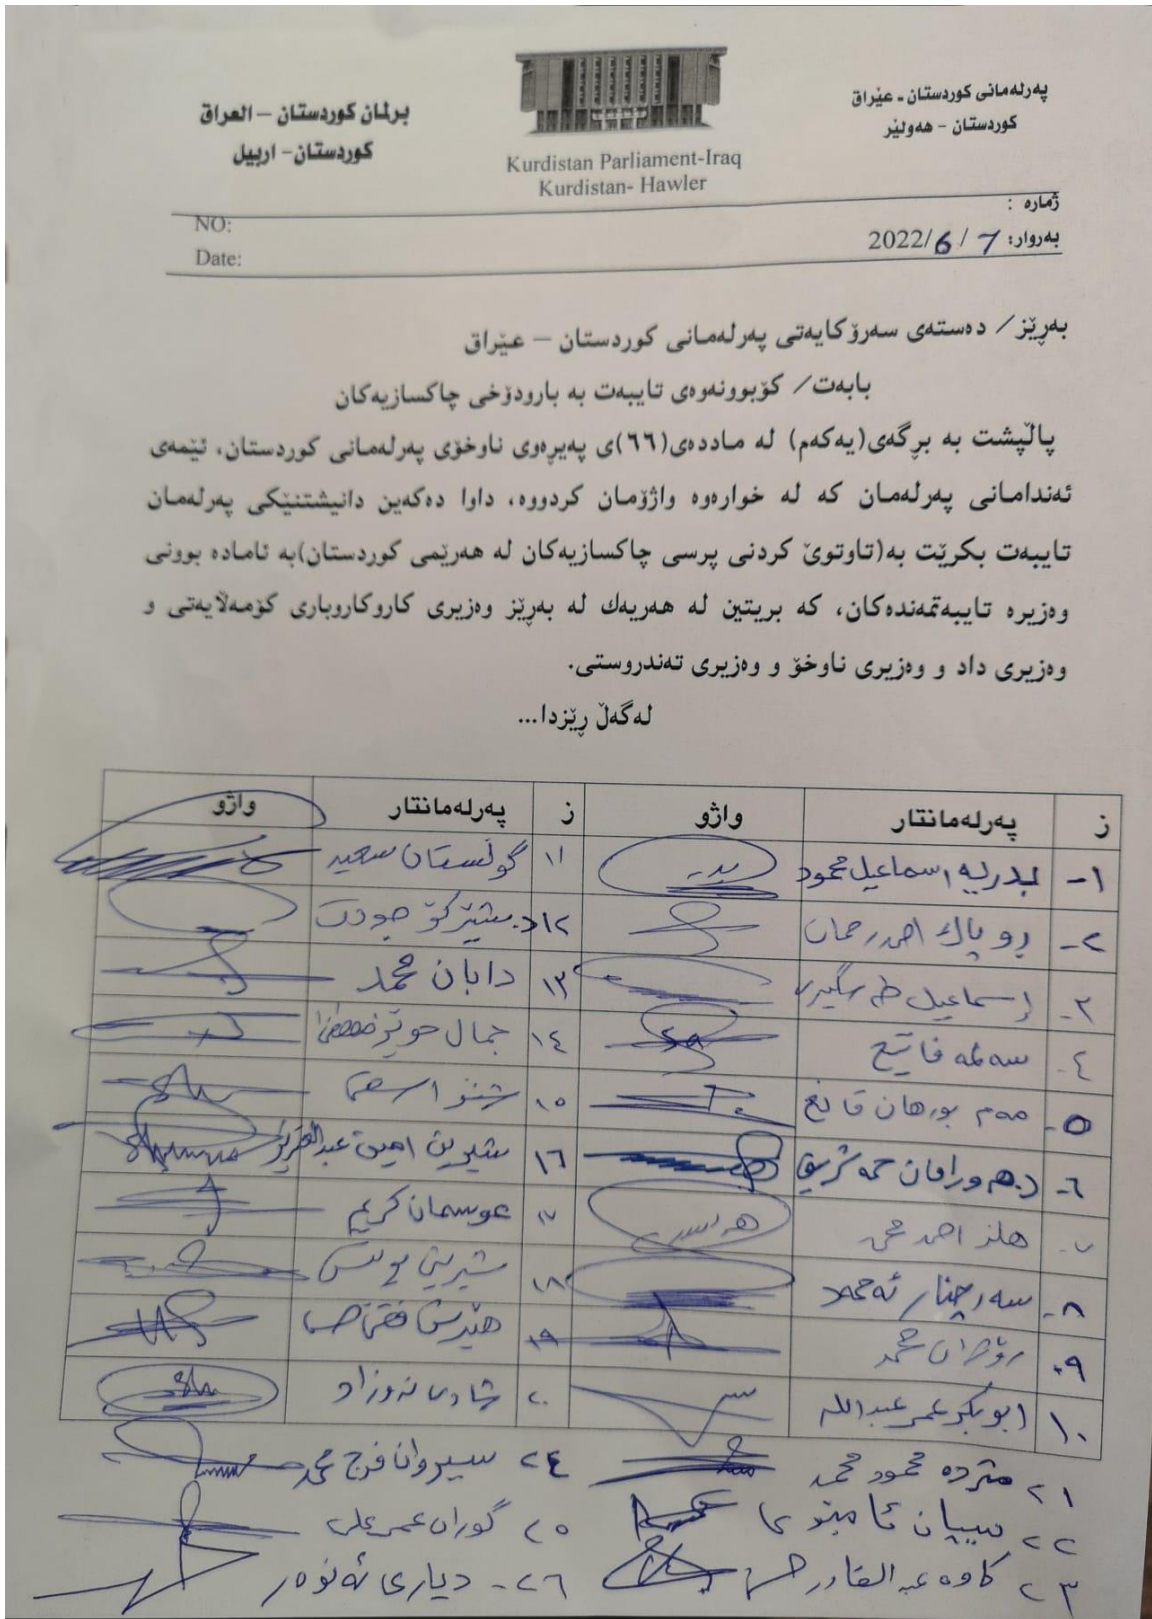 پەرلەمانی کوردستان ـ عێراق
کوردستان – هەولێر
برلمان كوردستان – العراق
كوردستان- اربيل
Kurdistan Parliament-Iraq
Kurdistan- Hawler
ژمارە :
NO:
بەروار: 7 / 6 /2022
Date:
بەڕێز/ دەستەی سەرۆکایەتی پەرلەمانی کوردستان – عێراق
بابەت/ کۆبوونەوەی تایبەت بە بارودۆخی چاکسازیەکان
پاڵپشت بە بڕگەی(یەکەم) لە ماددەی(٦٦)ی پەیڕەوی ناوخۆی پەرلەمانی کوردستان، ئێمەی
ئەندامانی پەرلەمان کە لە خوارەوە واژۆمان کردووە، داوا دەکەین دانیشتنێکی پەرلەمان
تایبەت بکرێت بە(تاوتوێ کردنی پرسی چاکسازیەکان لە هەرێمی کوردستان)بە ئامادە بوونی
وەزیرە تایبەتمەندەکان، کە بریتین لە هەریەك لە بەڕێز وەزیری کاروکاروباری کۆمەڵایەتی و
وەزیری داد و وەزیری ناوخۆ و وەزیری تەندروستی.
لەگەڵ ڕێزدا...
ز پەرلەمانتار واژو ز پەرلەمانتار واژو
١- بدريه اسماعيل محمود ١١ گوڵستان سعيد
٢- روپاك احمد رحمان ١٢ د. شێركۆ جودت
٣- إسماعيل طه ١٣ دابان محمد
٤- سەلمە فاتیح ١٤ جمال حوێز مصطفى
٥- مەم بورهان قانع ١٥ شنۆ
٦- د. هەورامان حمە شريف ١٦ شيرين امين عبدالعزيز
٧- هلز احمد ١٧ عوسمان كريم
٨- سەرچنار ئەحمەد ١٨ شيرين يونس
٩- محمد ١٩ هێرش
١٠- ابوبكر عمر عبدالله ٢٠ شادى نەوزاد
٢١ مژدە محمود محمد ٢٤ سيروان فرج محمد
٢٢ سيپان ئامێدى ٢٥ گوران عمر على
٢٣ كاوە عبدالقادر حسن ٢٦- ديارى ئەنوەر